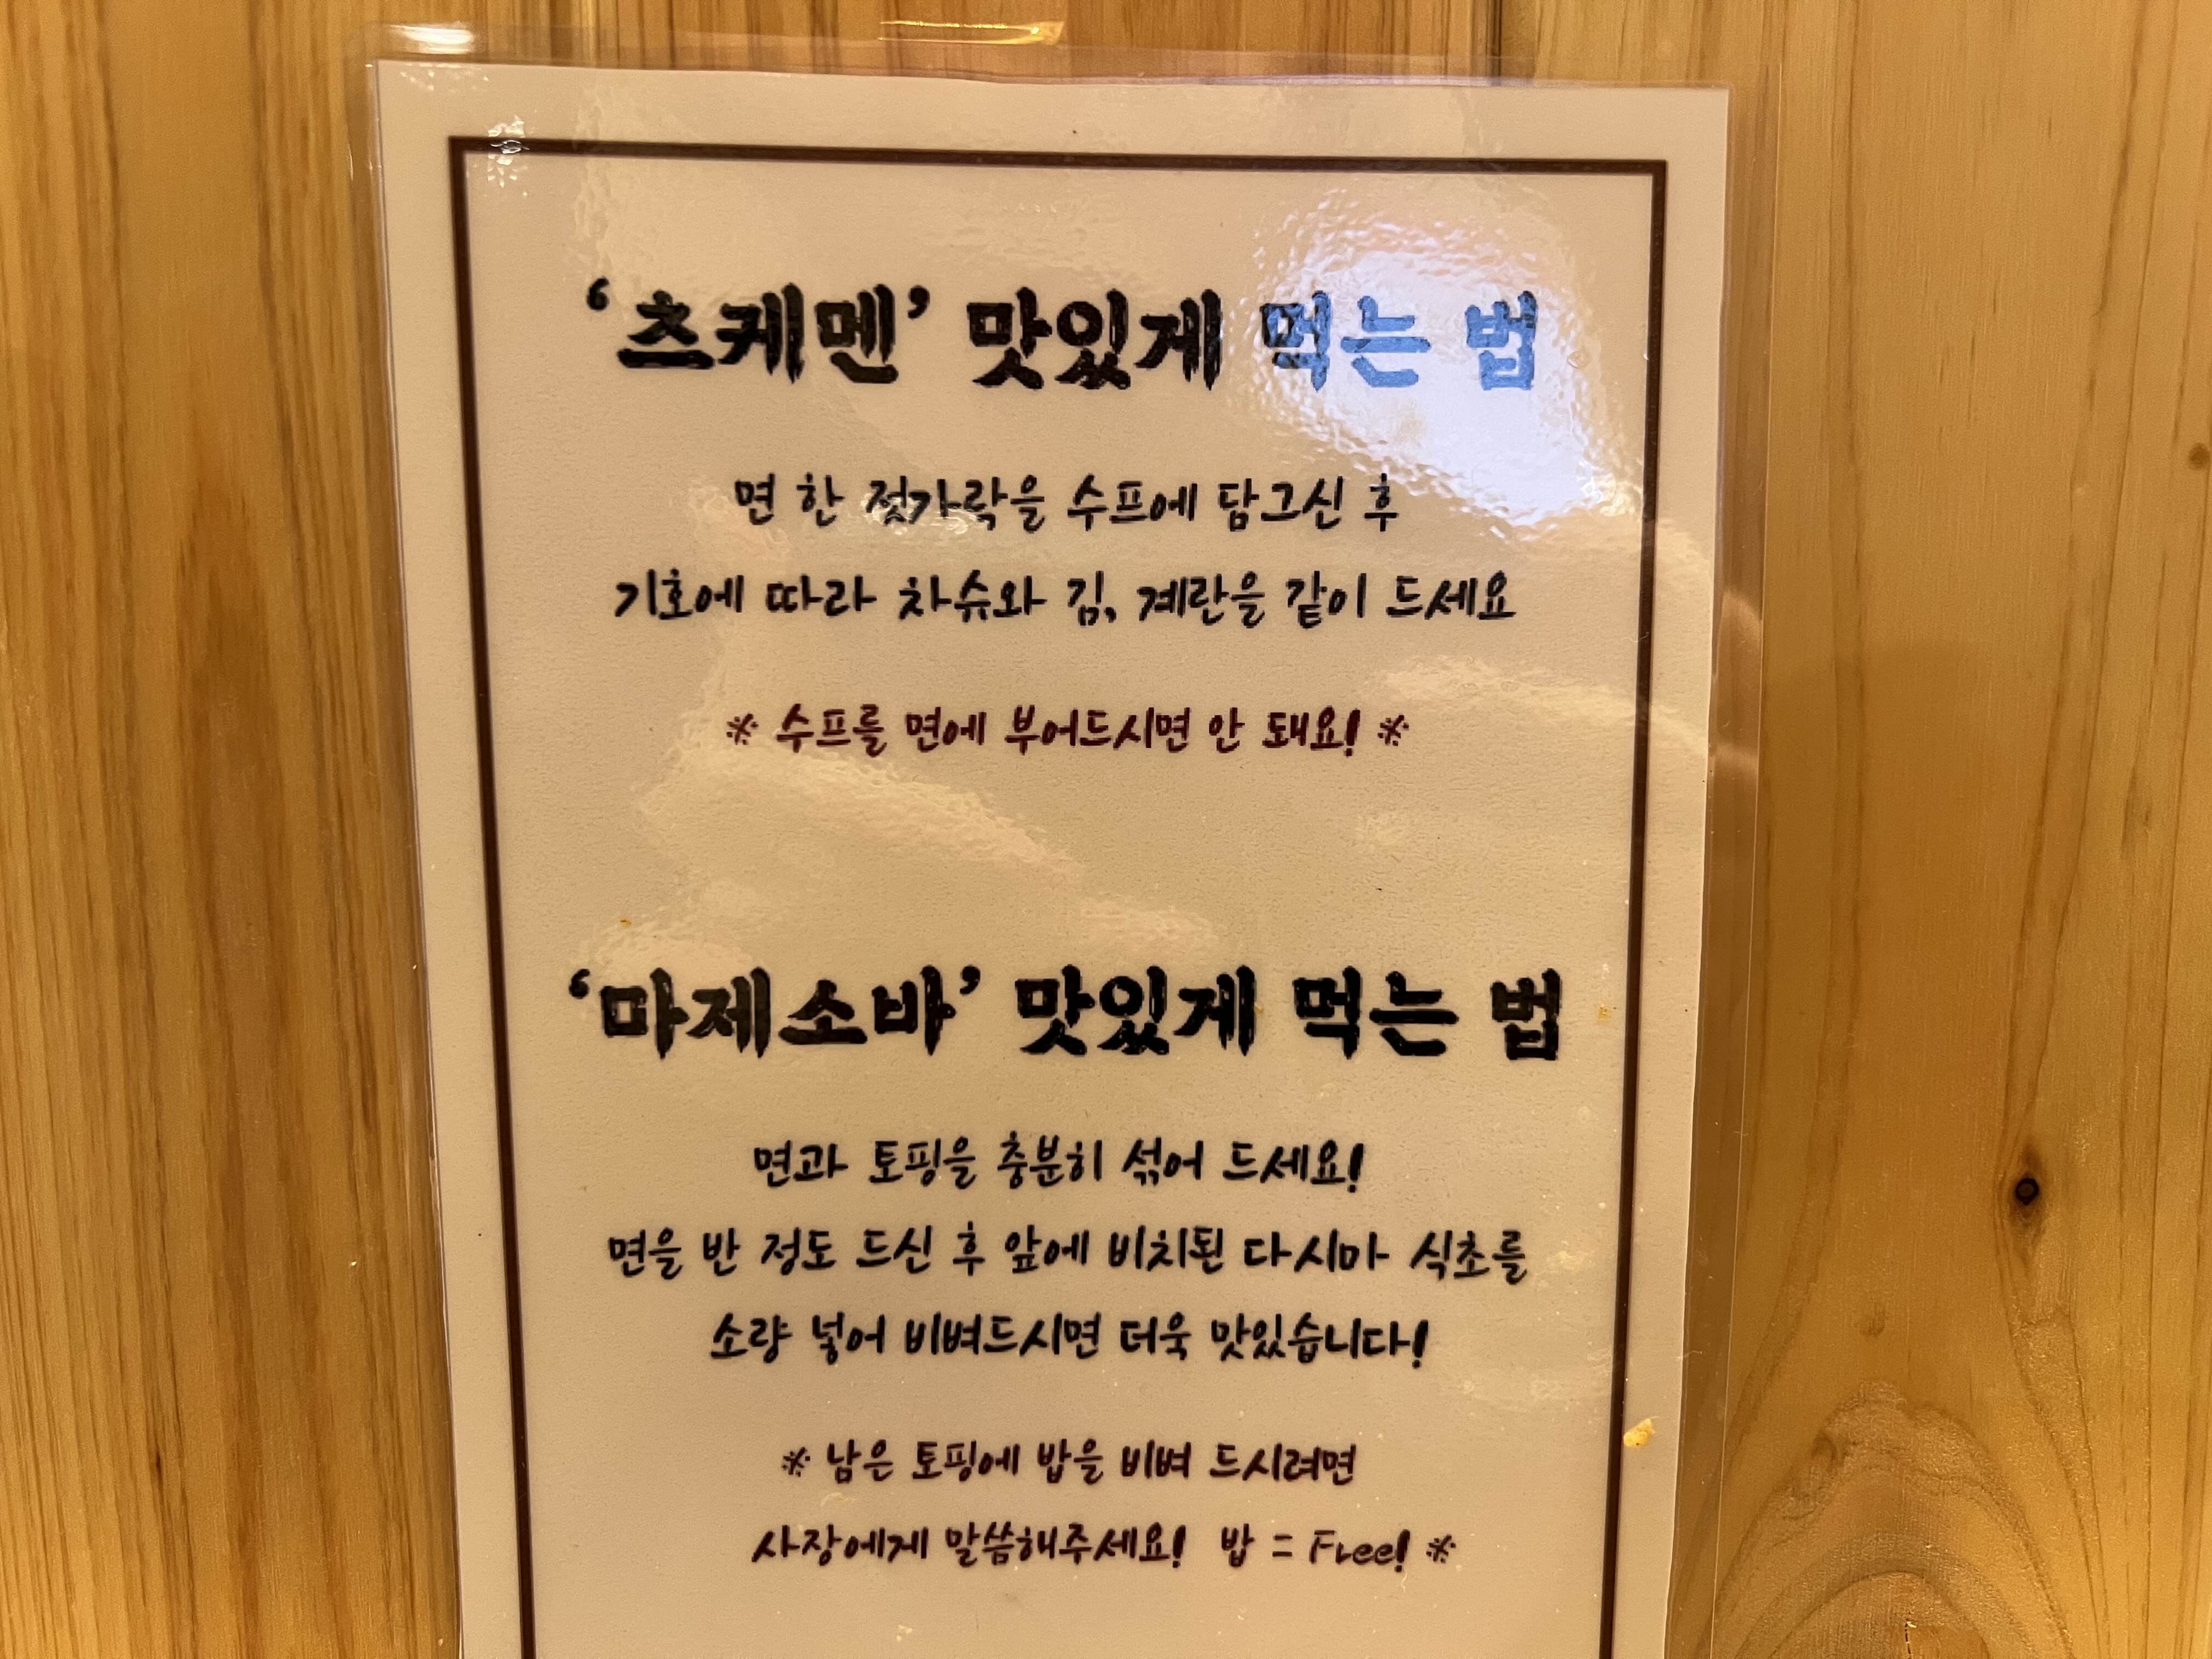 ‘츠케멘’ 맛있게 먹는 법
면 한 젓가락을 수프에 담그신 후
기호에 따라 차슈와 김, 계란을 같이 드세요
※ 수프를 면에 부어드시면 안 돼요! ※
‘마제소바’ 맛있게 먹는 법
면과 토핑을 충분히 섞어 드세요!
면을 반 정도 드신 후 앞에 비치된 다시마 식초를
소량 넣어 비벼드시면 더욱 맛있습니다!
※ 남은 토핑에 밥을 비벼 드시려면
사장에게 말씀해주세요! 밥 = Free! ※